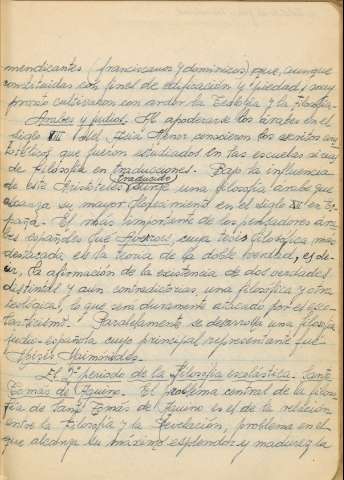 mendicantes (franciscanos y dominicos) que, aunque
constituidas con fines de edificación y piedad, muy
pronto cultivaron con ardor la Teología y la Filosofía.
Arabes y judíos. Al apoderarse los árabes en el
siglo VIII del Asia Menor conocieron los escritos aris
totélicos que fueron estudiados en las escuelas sirias
de filosofía en traducciones. Bajo la influencia
de este Aristóteles traducido surge una filosofía árabe que
alcanza su mayor florecimiento en el siglo XII en Es
paña. El más importante de los pensadores ára
bes españoles fué Averroes, cuya tesis filosófica más
destacada es la teoría de la doble verdad, es de
cir, la afirmación de la existencia de dos verdades
distintas y aún contradictorias, una filosófica y otra
teológica, lo que será duramente atacado por el esco
lasticismo. Paralelamente se desarrolla una filosofía
judío-española cuyo principal representante fué
Moisés Maimónides.
El 2º periodo de la Filosofía escolástica. Santo
Tomás de Aquino. El problema central de la filoso
fía de Santo Tomás de Aquino es el de la relación
entre la Filosofía y la Revelación, problema en el
que alcanza su máximo esplendor y madurez la